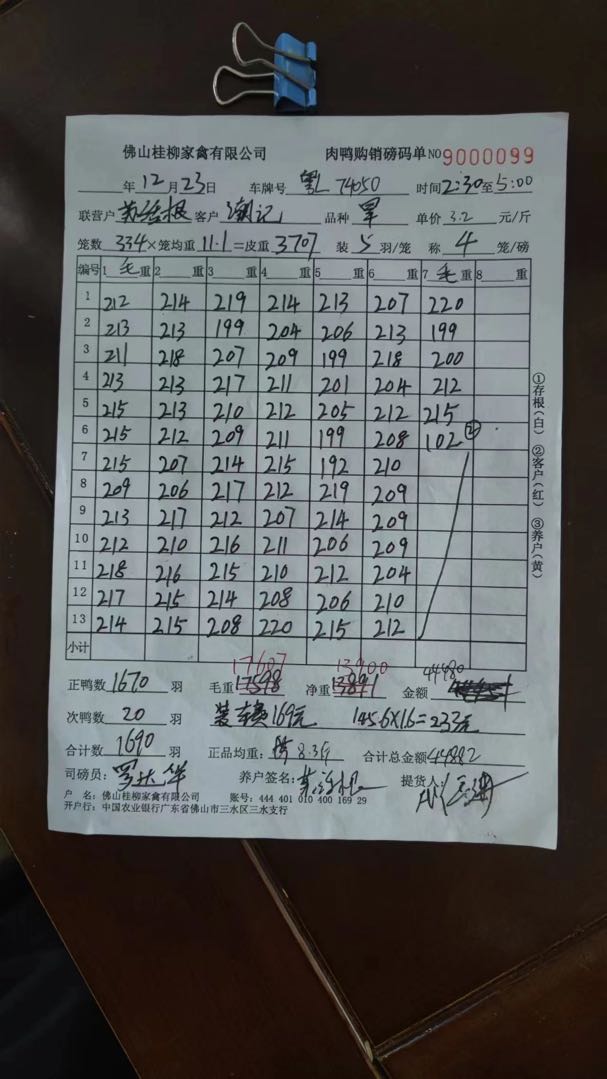 佛山桂柳家禽有限公司 肉鸭购销磅码单 NO 9000099
年 12 月 23 日 车牌号 粤L 74050 时间 2:30 至 5:00
联营户 根 客户 潮记 品种 单价 3.2 元/斤
笼数 334 × 笼均重 11.1 = 皮重 3707 装 5 羽/笼 称 4 笼/磅
编号 1 毛重 2 重 3 重 4 重 5 重 6 重 7 毛重 8 重
1 212 214 219 214 213 207 220
2 213 213 199 204 206 213 199
3 211 218 207 209 199 218 200
4 213 213 217 211 201 204 212
5 215 213 210 212 205 212 215
6 215 212 209 211 199 208 102 ②
7 215 207 214 215 192 210
8 209 206 217 212 219 209
9 213 217 212 207 214 209
10 212 210 216 211 206 209
11 218 216 215 210 212 204
12 217 215 214 208 206 210
13 214 215 208 220 215 212
小计
17607 13900 44480
正鸭数 1670 羽 毛重 17598 净重 13891 金额
次鸭数 20 羽 装车费169元 145.6×1.6=233元
合计数 1690 羽 正品均重: 8.39 合计总金额 44882
司磅员: 养户签名: 根 提货人:
户 名: 佛山桂柳家禽有限公司 账号: 444 401 010 400 169 29
开户行: 中国农业银行广东省佛山市三水区三水支行
①存根(白) ②客户(红) ③养户(黄)